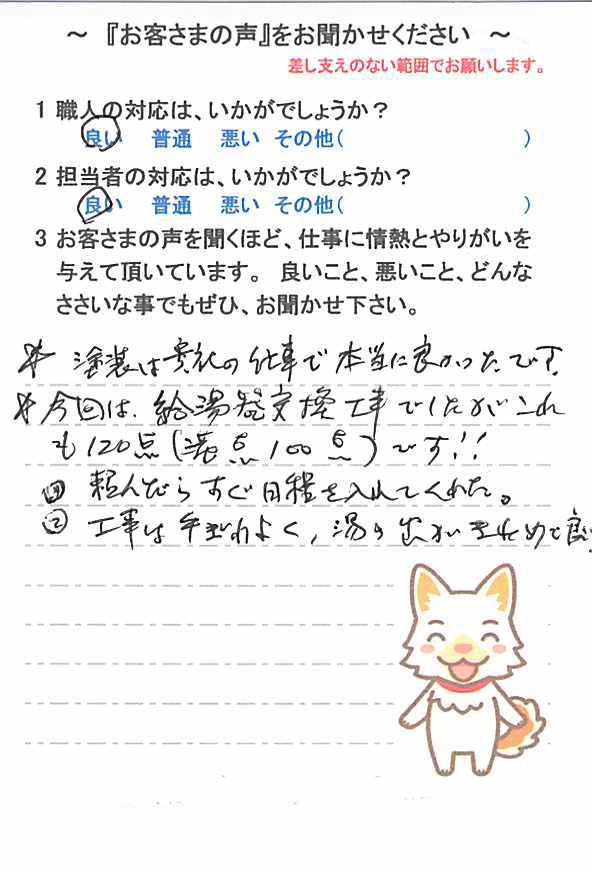 ～ 『お客さまの声』をお聞かせください ～
差し支えのない範囲でお願いします。
1 職人の対応は、いかがでしょうか？
良い 普通 悪い その他( )
2 担当者の対応は、いかがでしょうか？
良い 普通 悪い その他( )
3 お客さまの声を聞くほど、仕事に情熱とやりがいを
与えて頂いています。 良いこと、悪いこと、どんな
ささいな事でもぜひ、お聞かせ下さい。
* 塗装は貴社の仕事で本当に良かったです。
* 今回は、給湯器交換工事でしたがこれ
も120点(満点100点)です!!
① 頼んだらすぐ日程を入れてくれた。
② 工事は手ぎわよく、湯の出が きわめて良い